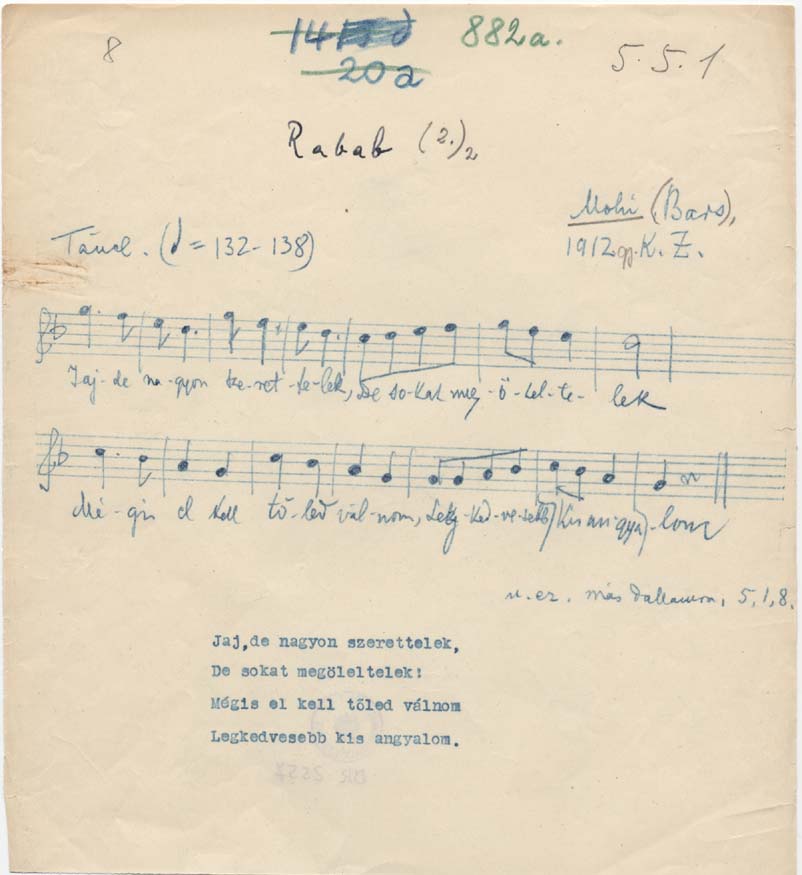 8
882a.
5.5.1
20a
Rabab (2.)2
Mohi (Bars),
1912 gp. K. Z.
Táncl. (♩ = 132-138)
Jaj-de na-gyon sze-ret-te-lek, De so-kat meg-ö-lel-te-lek
Mé-gis el kell tő-led vál-nom, Leg-ked-ve-sebb Kis an-gya-lom
u. ez. más dallamra, 5,1,8.
Jaj,de nagyon szerettelek,
De sokat megöleltelek!
Mégis el kell tőled válnom
Legkedvesebb kis angyalom.